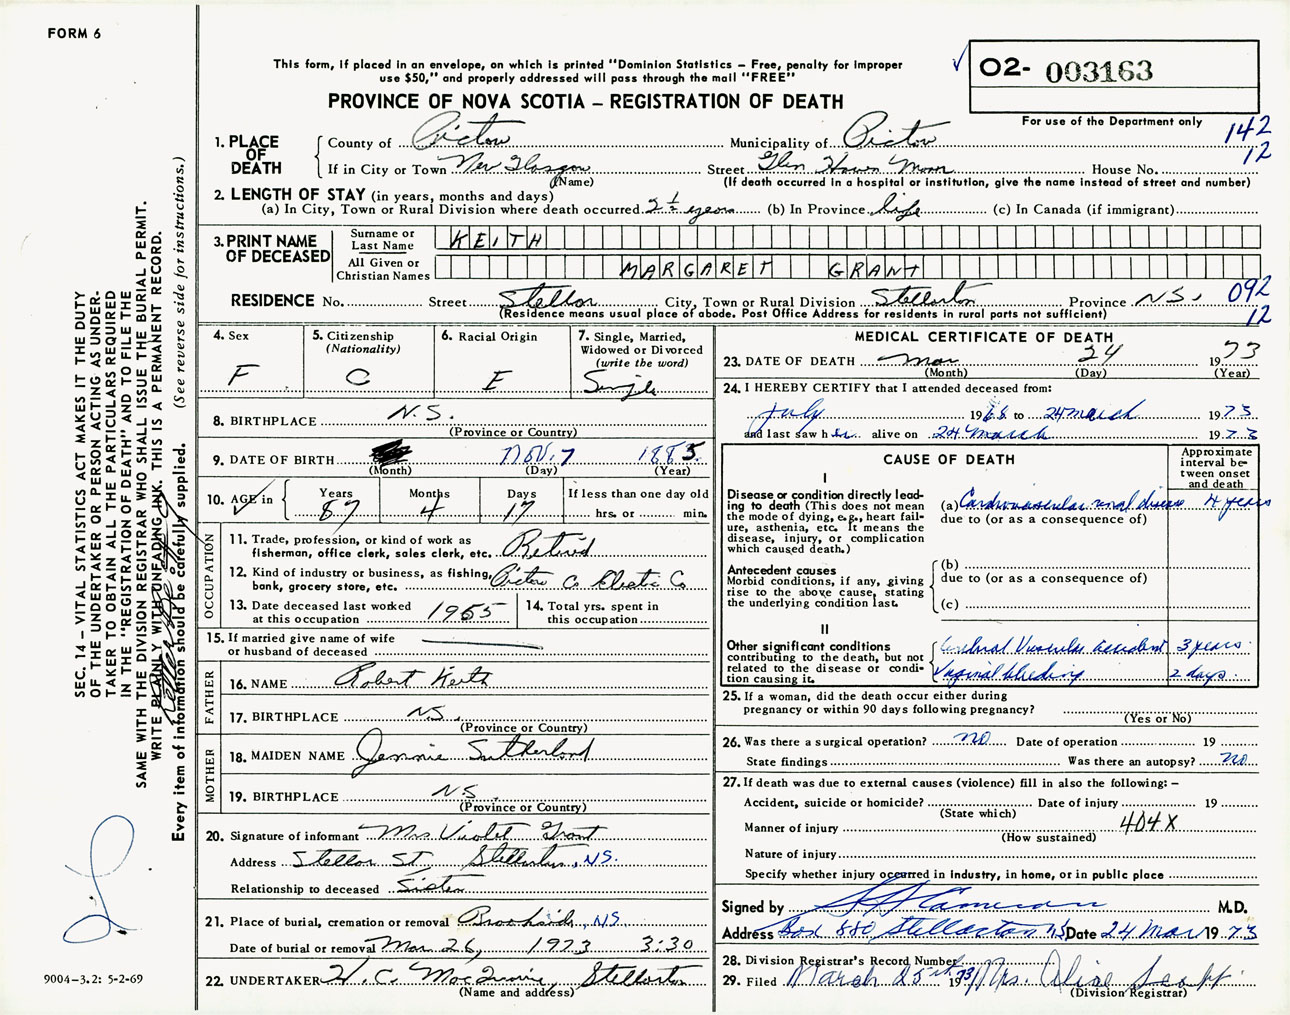 FORM 6
This form, if placed in an envelope, on which is printed "Dominion Statistics – Free, penalty for improper
use $50," and properly addressed will pass through the mail "FREE"
PROVINCE OF NOVA SCOTIA – REGISTRATION OF DEATH
O2- 003163
For use of the Department only
142
12
1. PLACE OF DEATH
County of Pictou Municipality of Pictou
If in City or Town New Glasgow Street Glen Haven Manor House No.
(Name) (If death occurred in a hospital or institution, give the name instead of street and number)
2. LENGTH OF STAY (in years, months and days)
(a) In City, Town or Rural Division where death occurred 2 ½ years (b) In Province life (c) In Canada (if immigrant)
3. PRINT NAME OF DECEASED
Surname or Last Name KEITH
All Given or Christian Names MARGARET GRANT
RESIDENCE No. Street Stellar City, Town or Rural Division Stellarton Province N.S. 092
12
(Residence means usual place of abode. Post Office Address for residents in rural parts not sufficient)
4. Sex
F
5. Citizenship
(Nationality)
C
6. Racial Origin
E
7. Single, Married, Widowed or Divorced
(write the word)
Single
8. BIRTHPLACE N.S.
(Province or Country)
9. DATE OF BIRTH Nov. 7 1885
(Month) (Day) (Year)
10. AGE in
Years 87 Months 4 Days 17
If less than one day old
hrs. or min.
OCCUPATION
11. Trade, profession, or kind of work as
fisherman, office clerk, sales clerk, etc. Retired
12. Kind of industry or business, as fishing,
bank, grocery store, etc. Pictou Co Electric Co
13. Date deceased last worked
at this occupation 1955
14. Total yrs. spent in
this occupation
15. If married give name of wife
or husband of deceased
FATHER
16. NAME Robert Keith
17. BIRTHPLACE N.S.
(Province or Country)
MOTHER
18. MAIDEN NAME Jennie Sutherland
19. BIRTHPLACE N.S.
(Province or Country)
20. Signature of informant Mrs Violet Grant
Address Stellar St. Stellarton, N.S.
Relationship to deceased Sister
21. Place of burial, cremation or removal Brookside, N.S.
Date of burial or removal Mar. 26, 1973 3:30
22. UNDERTAKER H. C. Stellarton
(Name and address)
MEDICAL CERTIFICATE OF DEATH
23. DATE OF DEATH Mar 24 1973
(Month) (Day) (Year)
24. I HEREBY CERTIFY that I attended deceased from:
July 1968 to 24 March 1973
and last saw her alive on 24 March 1973
CAUSE OF DEATH
Approximate interval between onset and death
I
Disease or condition directly lead-
ing to death (This does not mean
the mode of dying, e.g., heart fail-
ure, asthenia, etc. It means the
disease, injury, or complication
which caused death.)
(a) Cardiovascular renal disease 4 years
due to (or as a consequence of)
Antecedent causes
Morbid conditions, if any, giving
rise to the above cause, stating
the underlying condition last.
(b)
due to (or as a consequence of)
(c)
II
Other significant conditions
contributing to the death, but not
related to the disease or condi-
tion causing it.
Cerebral Vascular accident 3 years
Vaginal bleeding 2 days
25. If a woman, did the death occur either during
pregnancy or within 90 days following pregnancy?
(Yes or No)
26. Was there a surgical operation? no Date of operation 19
State findings Was there an autopsy? no
27. If death was due to external causes (violence) fill in also the following: –
Accident, suicide or homicide? Date of injury 19
(State which)
Manner of injury 404X
(How sustained)
Nature of injury
Specify whether injury occurred in industry, in home, or in public place
Signed by Cameron M.D.
Address Box 880 Stellarton NS Date 24 Mar 1973
28. Division Registrar's Record Number
29. Filed March 25th 1973 Mrs. Alice
(Division Registrar)
SEC. 14 – VITAL STATISTICS ACT MAKES IT THE DUTY
OF THE UNDERTAKER OR PERSON ACTING AS UNDER-
TAKER TO OBTAIN ALL THE PARTICULARS REQUIRED
IN THE "REGISTRATION OF DEATH" AND TO FILE THE
SAME WITH THE DIVISION REGISTRAR WHO SHALL ISSUE THE BURIAL PERMIT.
WRITE PLAINLY WITH UNFADING INK. THIS IS A PERMANENT RECORD.
Every item of information should be carefully supplied. (See reverse side for instructions.)
9004–3.2: 5-2-69